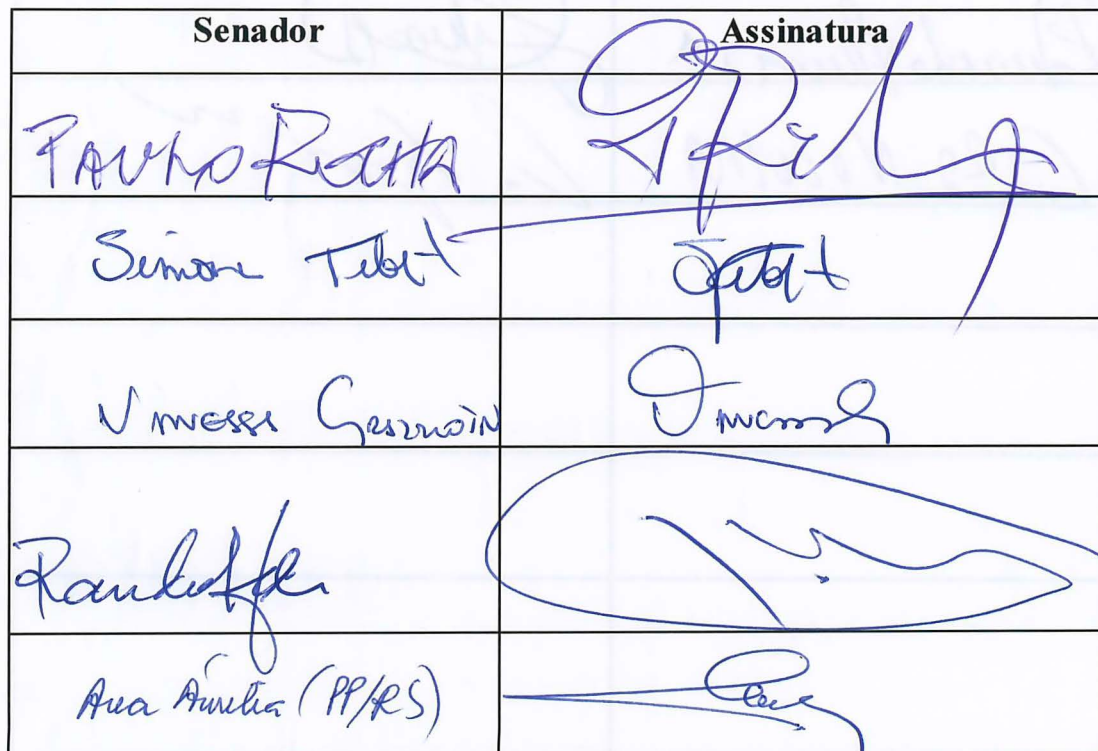 Senador Assinatura
PAULO ROCHA
Simone Tebet Tebet
Vanessa Grazziotin Vanessa
Randolfe
Ana Amélia (PP/RS)